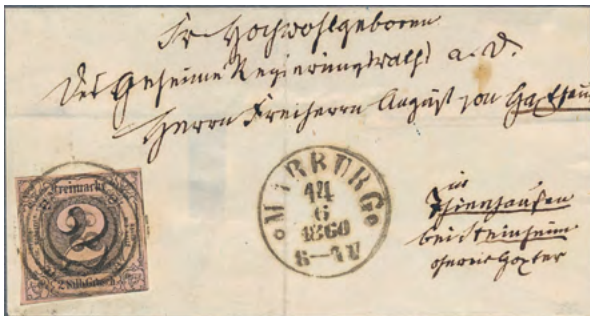 Sr Hochwohlgeboren
Des Geheime Regierungsraths a. D.
Herrn Freiherrn August von Haxthau
zu
Thienhausen
bei Steinheim
Freimarke
2
2 Silb. Grosch.
MARBURG
14
6
1860